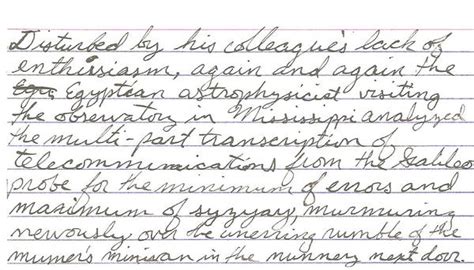 Disturbed by his colleague's lack of
enthusiasm, again and again the
Egyptian astrophysicist visiting
the observatory in Mississippi analyzed
the multi-part transcription of
telecommunications from the Galileo
probe for the minimum of errors and
maximum of syzygy, murmuring
nervously over the unerring rumble of the
mumer's minivan in the nunnery next door.